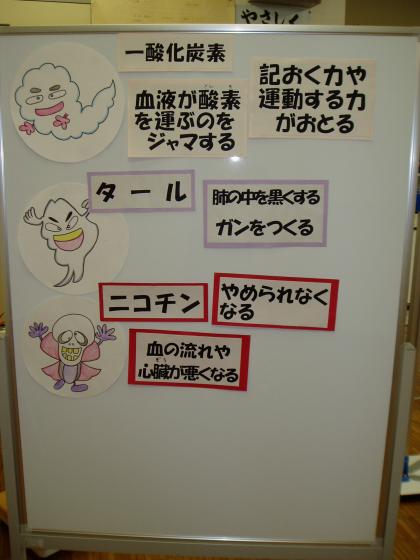 やさしく
一酸化炭素
血液が酸素
を運ぶのを
ジャマする
記おく力や
運動する力
がおとる
タール
肺の中を黒くする
ガンをつくる
ニコチン
やめられなく
なる
血の流れや
心臓が悪くなる